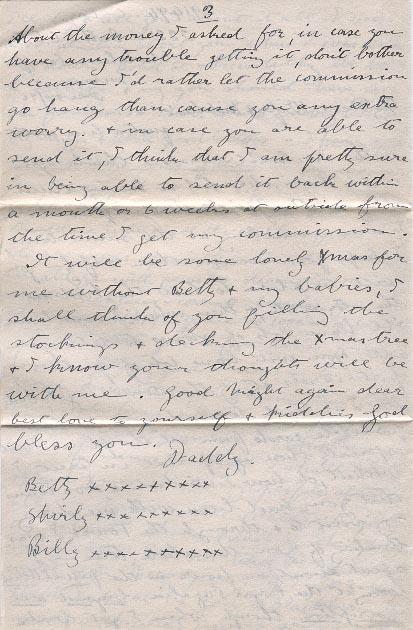 3
About the money I asked for, in case you
have any trouble getting it, don't bother
because I'd rather let the commission
go hang than cause you any extra
worry. & in case you are able to
send it, I think that I am pretty sure
in being able to send it back within
a month or 6 weeks at outside from
the time I get my commission.
It will be some lonely Xmas for
me without Betty & my babies, I
shall think of you filling the
stockings & decking the Xmas tree
& I know your thoughts will be
with me. Good Night again dear
best love to yourself & kiddies God
bless you.
Daddy.
Betty xxxxxxxxx
Shirly xxxxxxxxx
Billy xxxxxxxxxx